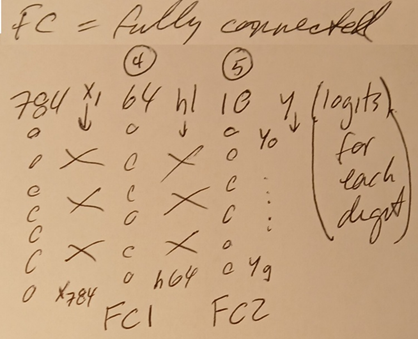 FC = fully connected
④ ⑤
784 x1 64 h1 10 y (logits)
y0
for
each
digit
x784 h64 y9
FC1 FC2